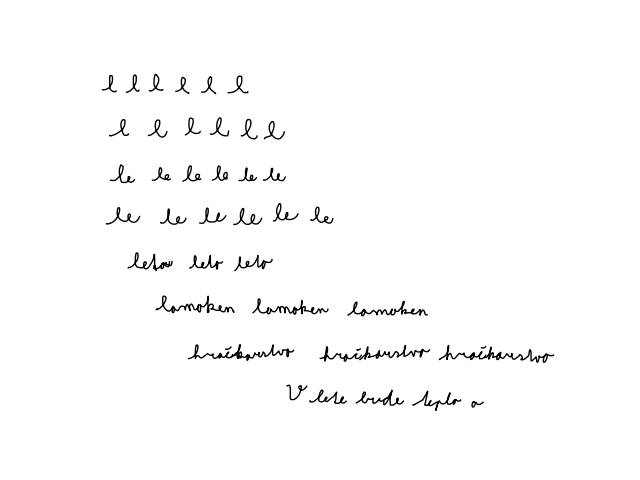 l l l l l l
l l l l l l
le le le le le le
le le le le le le
leto leto
lamoken lamoken lamoken
hračkarstvo hračkarstvo hračkarstvo
V lete bude teplo a